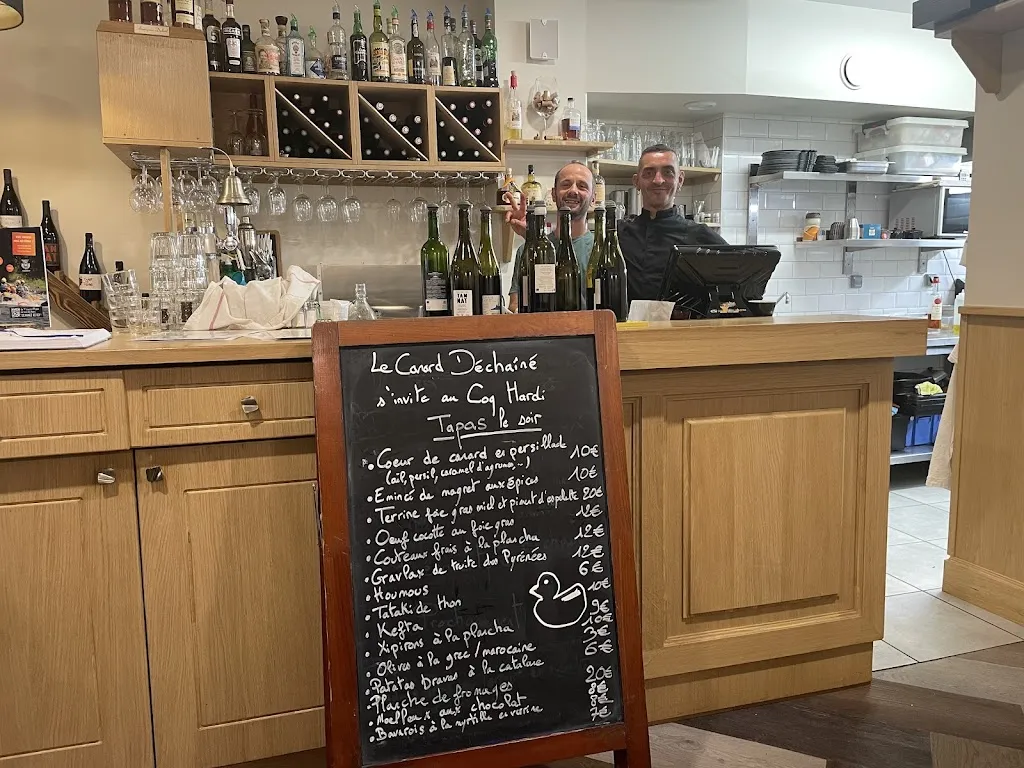 Le Canard Déchaîné
s'invite au Coq Hardi
Tapas le soir
• Coeur de canard en persillade 10€
(ail, persil, caramel d'agrumes, ...)
• Emincé de magret aux épices 10€
• Terrine foie gras miel et piment d'espelette 20€
• Oeuf cocotte au foie gras 12€
• Couteaux frais à la plancha 12€
• Gravlax de truite des Pyrénées 12€
• Houmous 6€
• Tataki de thon 10€
• Kefta 9€
• Xipirons à la plancha 10€
• Olives à la grec/marocaine 3€
• Patatas bravas à la catalane 6€
• Planche de fromages 20€
• Moelleux aux chocolat 8€
• Bavarois à la myrtille en verrine 7€
TANNAT